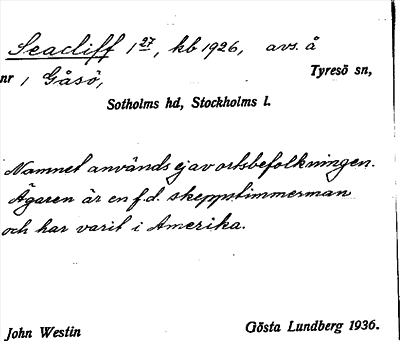 Seacliff 1 27, kb 1926, avs. å
nr 1 Gåsö,
Tyresö sn,
Sotholms hd, Stockholms l.
Namnet användes ej av ortsbefolkningen.
Ägaren är en f.d. skeppstimmerman
och har varit i Amerika.
John Westin
Gösta Lundberg 1936.